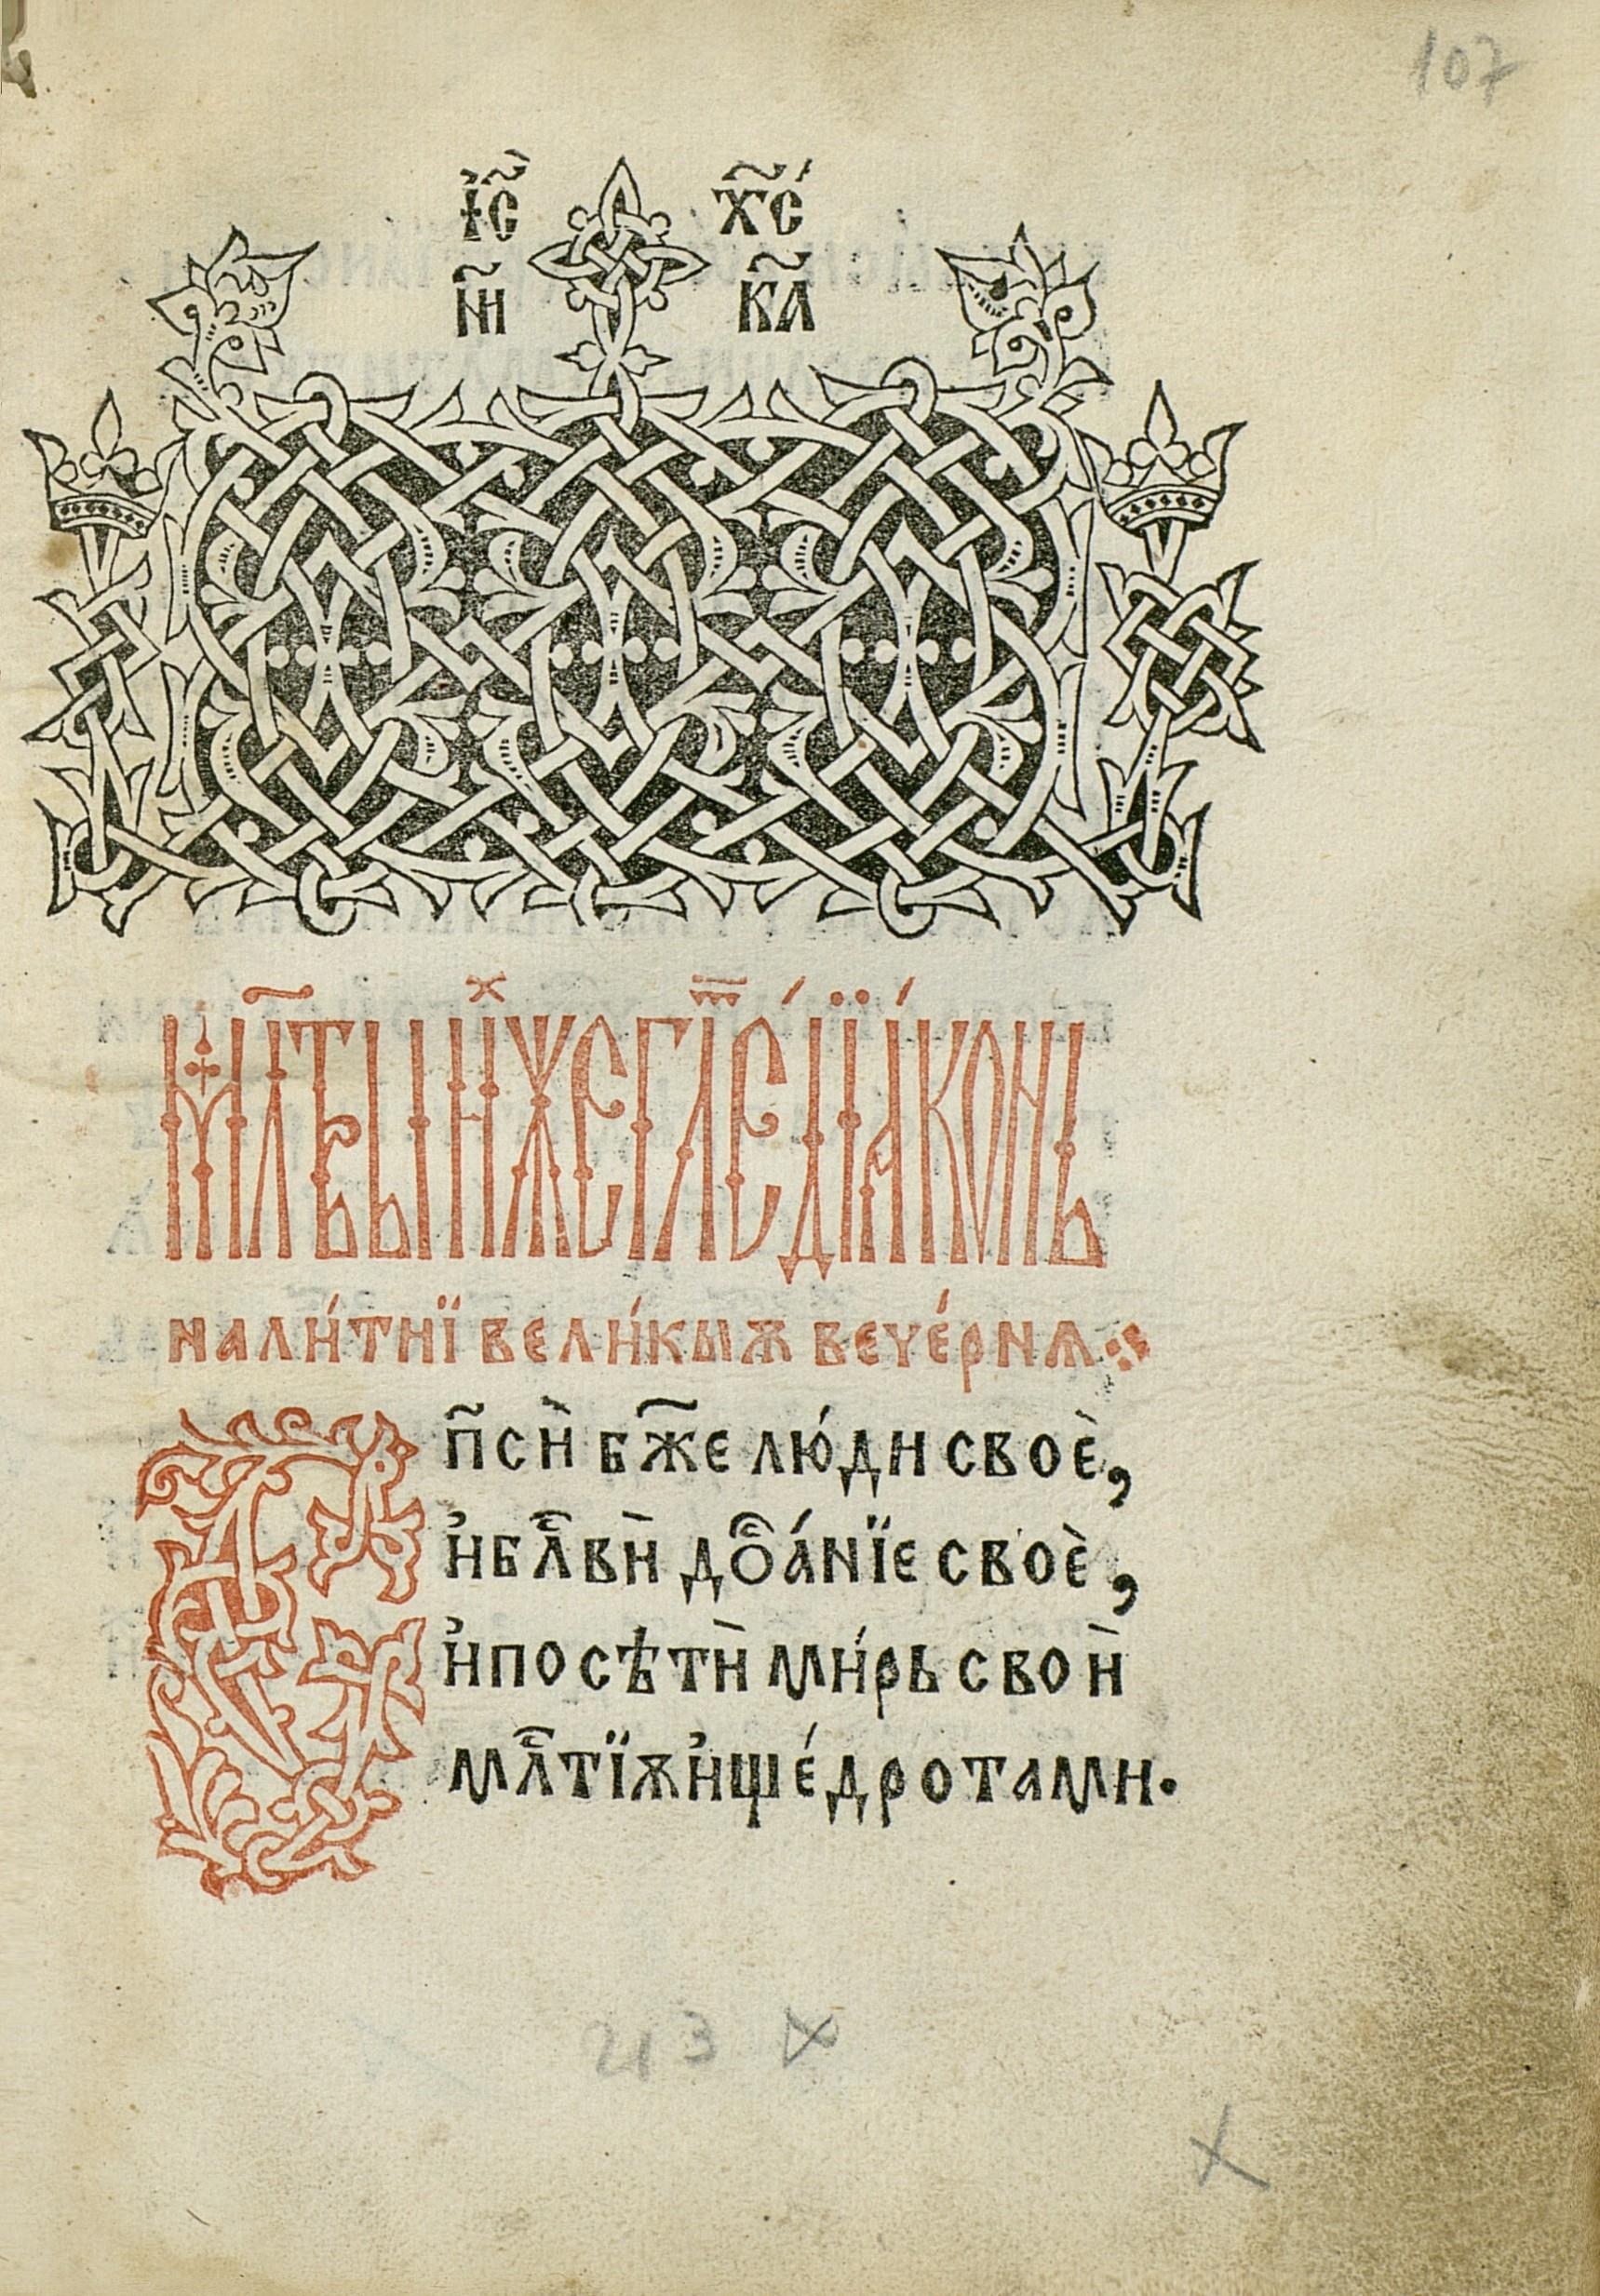 107
І҆С҃ Х҃С
НИ҃ КА҃
МЛ҃ТВЫ И҆́ЖЕ ГЛ҃Е́ДЇА́КОНЬ
НАЛИ́ТНЇ ВЕЛИ́КЫѪ ВЕЧЕ́РНѦ
СП҃СЍ Б҃ЖЕ ЛЮ́ДИ СВОЀ,
И҆БЛⷭ҇ВЍ ДОⷭ҇А́НЇЕ СВОЀ,
И҆ПОСѢТЍ МИ́РЬ СВОЍ
МЛⷭ҇ТЇѪ И҆ЩЕ́ДРОТАМИ.
213 X
X